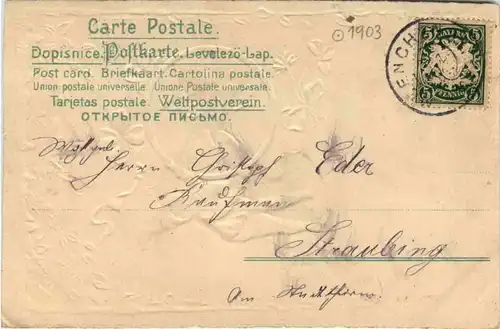 Carte Postale.
⊙1903
Dopisnice. Postkarte. Levelező-Lap.
Post card. Briefkaart. Cartolina postale.
Union postale universelle. Unione Postale universale.
Tarjetas postale. Weltpostverein.
ОТКРЫТОЕ ПИСЬМО.
5 BAYERN 5
5 PFENNIG 5
ENCH
Herrn Christoph Eder
Kaufmann
Straubing
Am Stadtthurm.